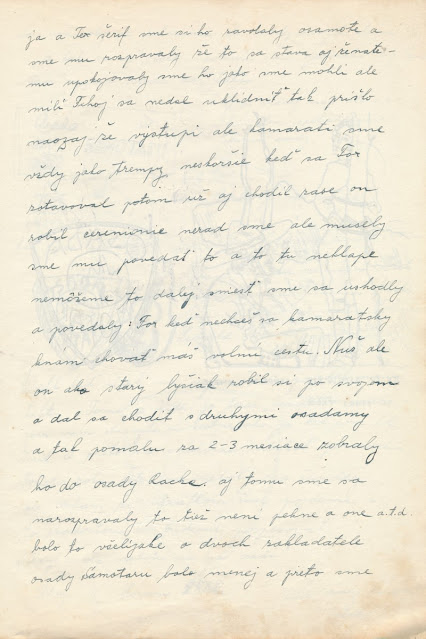 ja a Tor šerif sme si ho zavolaly osamote a
sme mu rozpravaly že to sa stava aj ženate-
mu upokojovaly sme ho jako sme mohli ale
milí Tihoj sa nedal uklidniť tak prišlo
naozaj že vystupi ale kamarati sme
vždy jako trempy neskoršie keď sa Tor
zotavoval potom už aj chodil zase on
robil ceremonie nerad sme ale musely
sme mu povedať to a to tu neklape
nemôžeme to dalej sniesť sme sa ushodly
a povedaly: Tor keď nechceš sa kamaratsky
knám chovať máš volnú cestu. Nuž ale
on ako stary lyšiak robil si po svojom
a dal sa chodit s druhymi osadamy
a tak pomalu za 2-3 mesiace zobraly
ho do osady Racke. aj tomu sme sa
narozpravaly to tiež neni pekne a one a.t.d.
bolo to všelijake o dvoch zakladatele
osady Samotaru bolo menej a preto sme